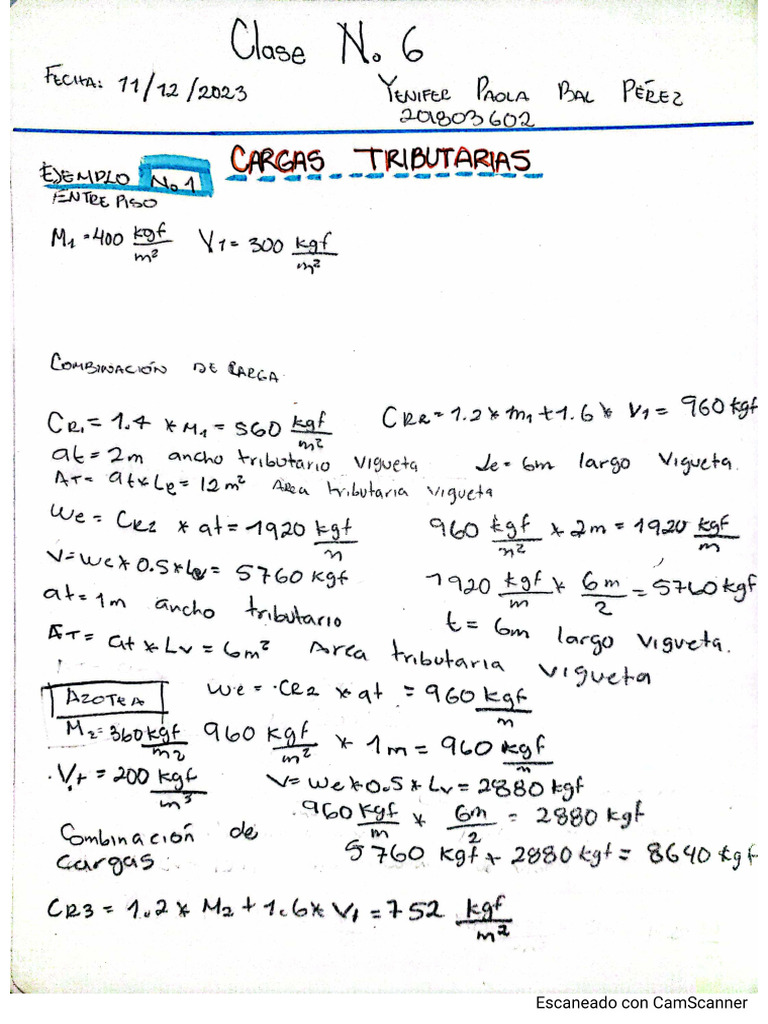 Clase No. 6
FECHA: 11/12/2023
YENIFER PAOLA BAL PÉREZ
201803602
CARGAS TRIBUTARIAS
EJEMPLO No.1
ENTRE PISO
M1 = 400 kgf/m² V1 = 300 kgf/m²
COMBINACIÓN DE CARGA
CR1 = 1.4 * M1 = 560 kgf/m² CR2 = 1.2 * m1 + 1.6 * V1 = 960 kgf
at = 2m ancho tributario vigueta Le = 6m largo vigueta.
AT = at * Le = 12m² Area tributaria vigueta
We = CR2 * at = 1920 kgf/m 960 kgf/m² * 2m = 1920 kgf/m
V = We * 0.5 * Le = 5760 kgf 1920 kgf/m * 6m/2 = 5760 kgf
at = 1m ancho tributario t = 6m largo vigueta.
AT = at * Lv = 6m² Area tributaria vigueta
AZOTEA We = CR2 * at = 960 kgf/m
M2 = 360 kgf/m2 960 kgf/m² * 1m = 960 kgf/m
V1 = 200 kgf/m³ V = We * 0.5 * Lv = 2880 kgf
960 kgf/m * 6m/2 = 2880 kgf
Combinación de cargas: 5760 kgf + 2880 kgf = 8640 kgf
CR3 = 1.2 * M2 + 1.6 * V1 = 752 kgf/m²
Escaneado con CamScanner